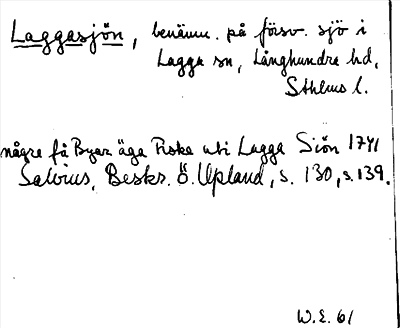 Laggasjön, benämn. på försv. sjö i
Lagga sn, Långhundra hd,
Sthlms l.
någre få Byar äga Fiske uti Lagga Siön 1741
Salvius, Beskr. Ö. Upland, s. 130, s. 139.
W.E. 61